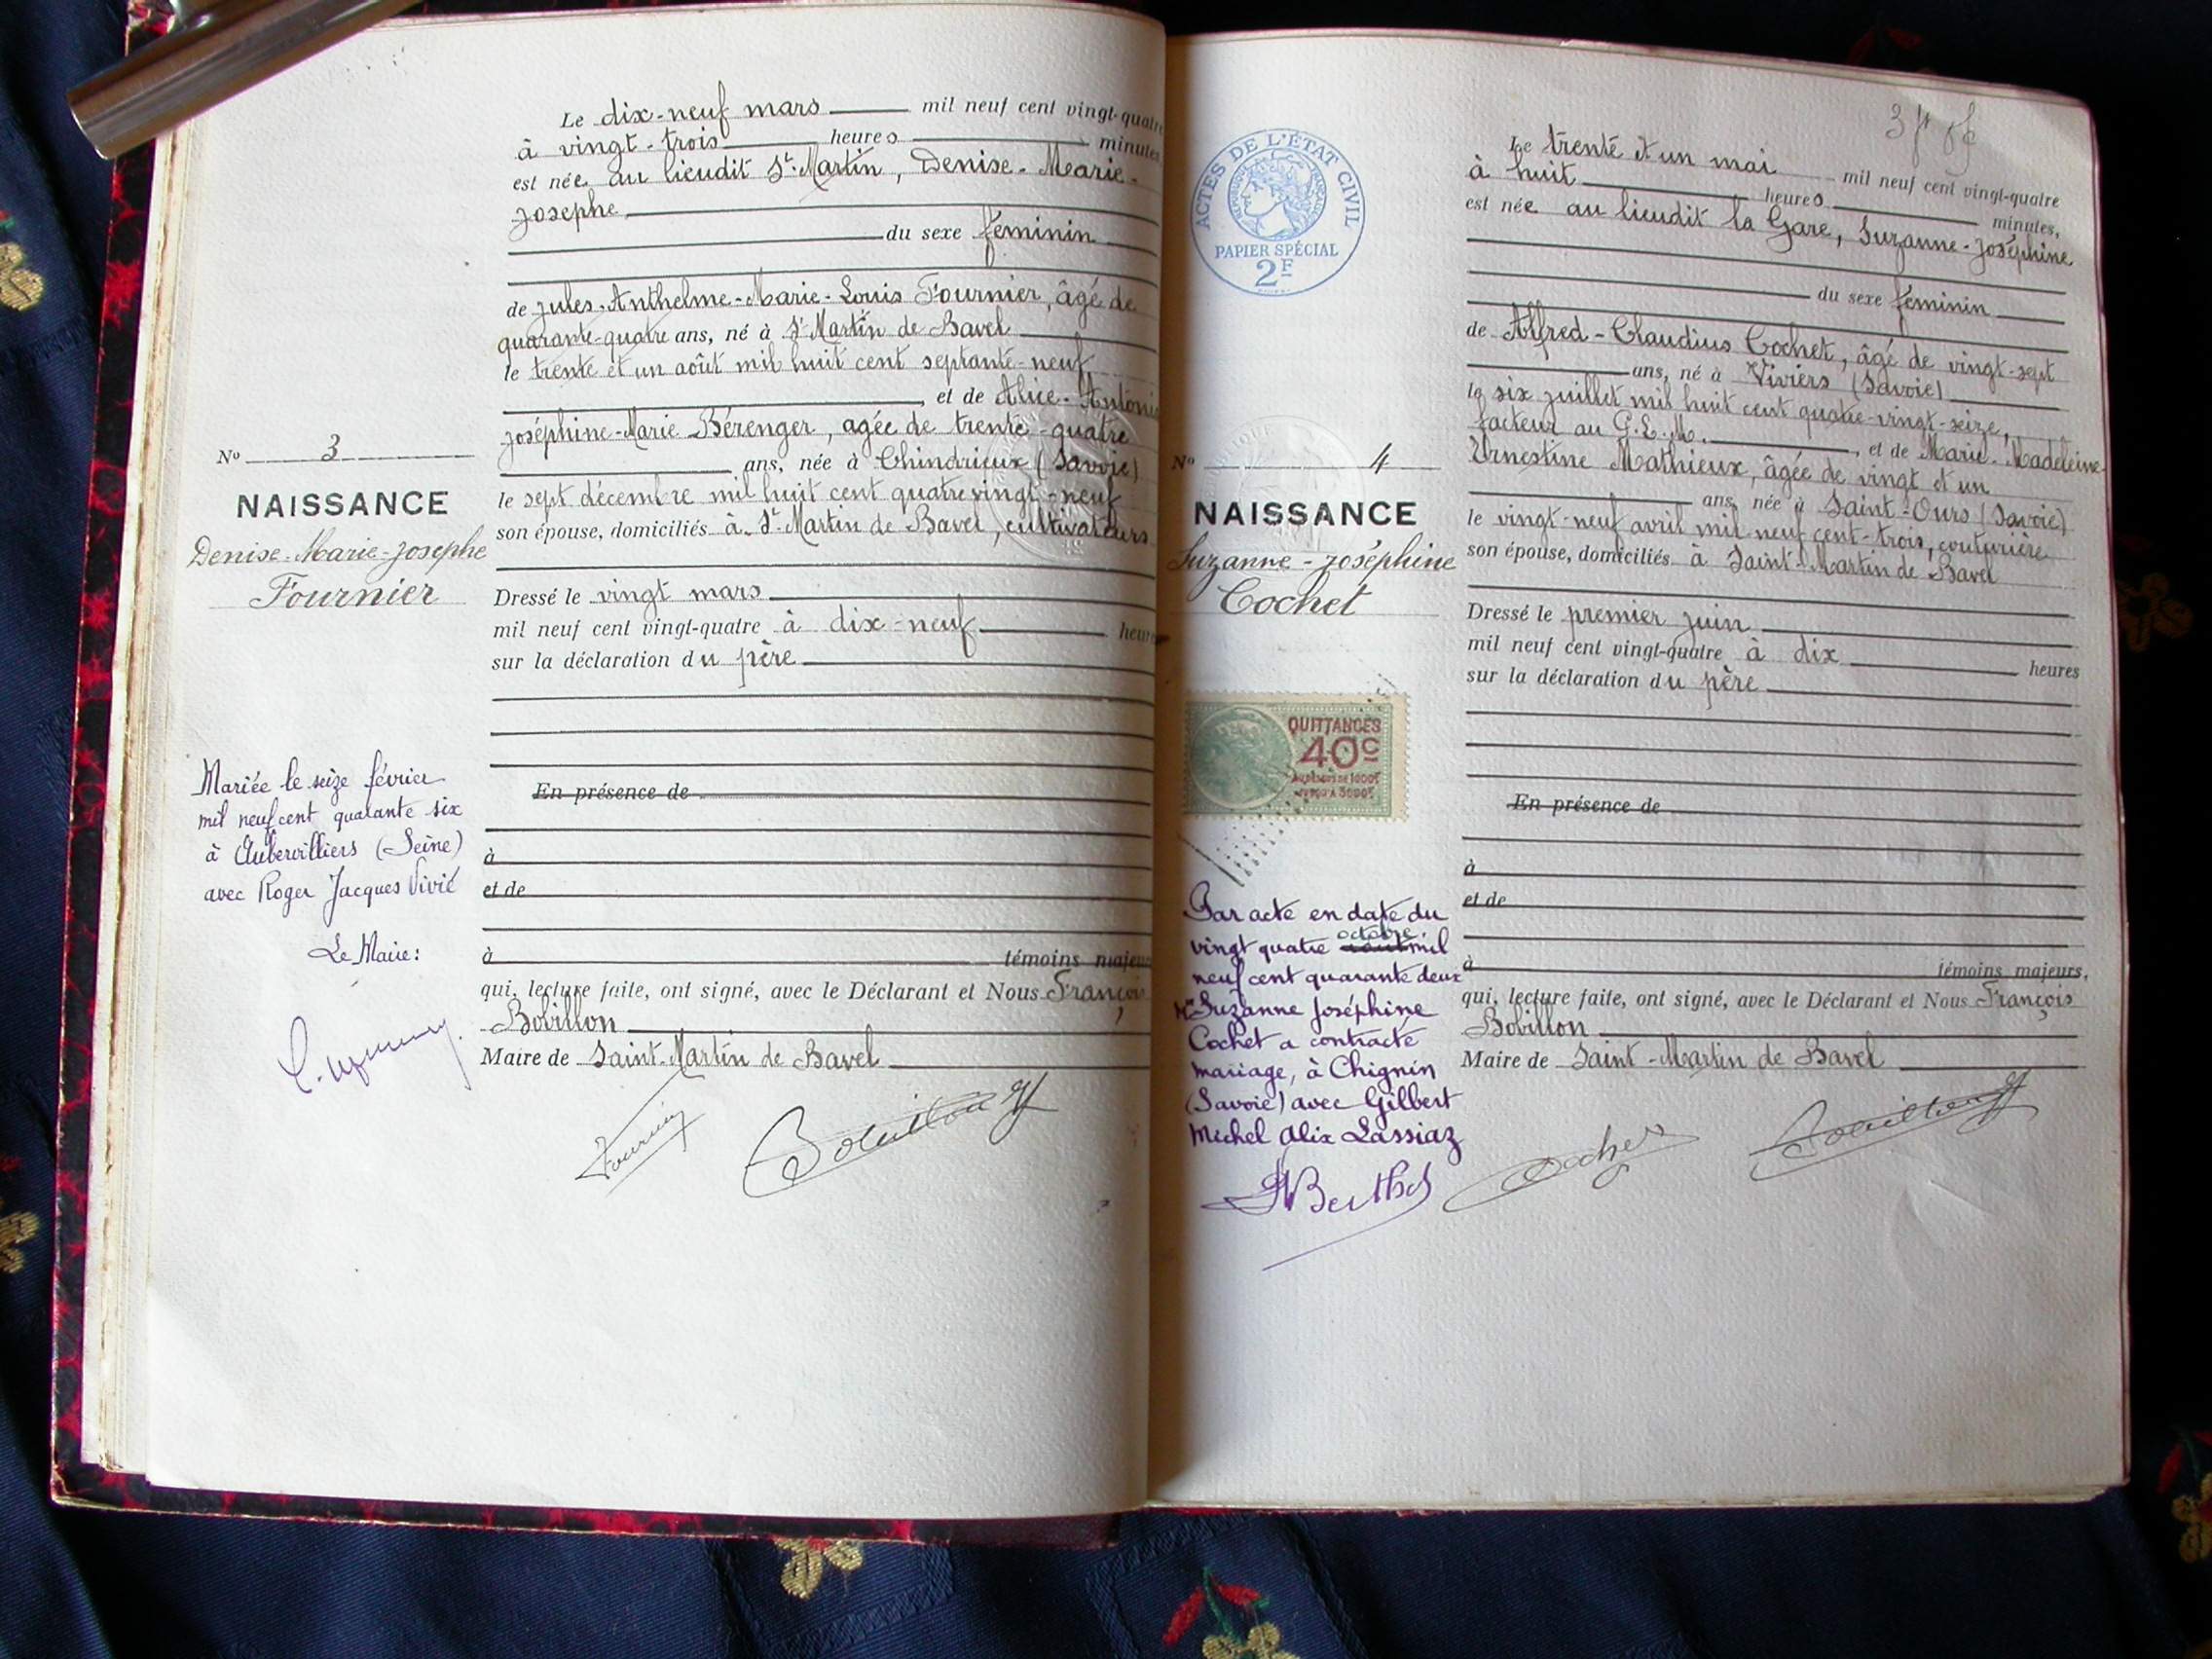 Le dix-neuf mars mil neuf cent vingt-quatre
à vingt-trois heures minutes
est née au lieudit St Martin, Denise-Marie-
Josephe
du sexe féminin
de Jules-Anthelme-Marie-Louis Fournier, âgé de
quarante-quatre ans, né à St Martin de Bavel
le trente et un août mil huit cent septante-neuf
et de Alice-Antonia
Joséphine-Marie Bérenger, agée de trente-quatre
ans, née à Chindrieux (Savoie)
le sept décembre mil huit cent quatre vingt-neuf
son épouse, domiciliés à St Martin de Bavel, cultivateurs
Dressé le vingt mars
mil neuf cent vingt-quatre à dix-neuf heures
sur la déclaration du père
En présence de
à
et de
à témoins majeurs
qui, lecture faite, ont signé, avec le Déclarant et Nous François
Bobillon
Maire de Saint-Martin de Bavel
Fournier
Bobillon
No 3
NAISSANCE
Denise-Marie-Josephe
Fournier
Mariée le seize février
mil neuf cent quarante six
à Aubervilliers (Seine)
avec Roger Jacques Vivié
Le Maire:
ACTES DE L'ÉTAT CIVIL
RÉPUBLIQUE FRANÇAISE
PAPIER SPÉCIAL
2F
No 4
NAISSANCE
Suzanne-Joséphine
Cochet
QUITTANCES
40c
AU-DESSUS DE 1000F
JUSQU'A 3000F
Par acte en date du
octobre
vingt quatre août mil
neuf cent quarante deux
Mlle Suzanne Joséphine
Cochet a contracté
mariage, à Chignin
(Savoie) avec Gilbert
Michel Alix Lassiaz
Berthet
Le trente et un mai mil neuf cent vingt-quatre
à huit heures minutes,
est née au lieudit la Gare, Suzanne-Joséphine
du sexe féminin
de Alfred-Claudius Cochet, âgé de vingt-sept
ans, né à Viviers (Savoie)
le six juillet mil huit cent quatre-vingt-seize,
facteur au P.L.M. et de Marie-Madeleine-
Ernestine Mathieux, âgée de vingt et un
ans, née à Saint-Ours (Savoie)
le vingt-neuf avril mil neuf cent-trois, couturière
son épouse, domiciliés à Saint-Martin de Bavel
Dressé le premier juin
mil neuf cent vingt-quatre à dix heures
sur la déclaration du père
En présence de
à
et de
à témoins majeurs,
qui, lecture faite, ont signé, avec le Déclarant et Nous François
Bobillon
Maire de Saint-Martin de Bavel
Cochet
Bobillon